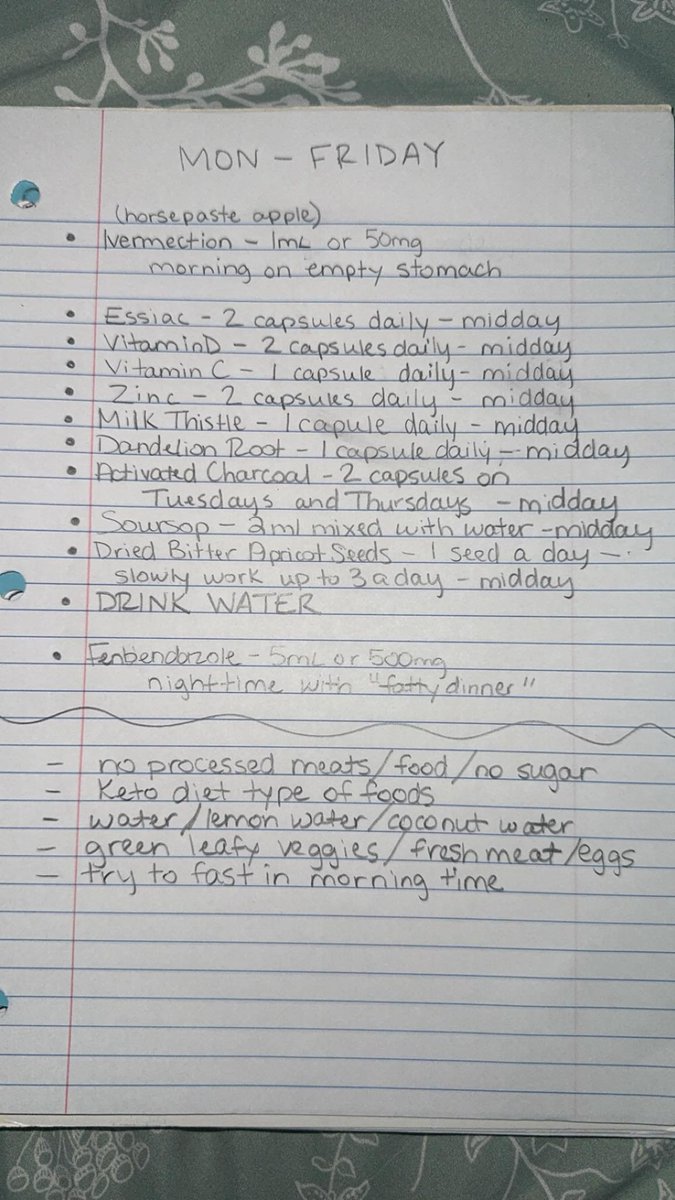 MON - FRIDAY
(horsepaste apple)
• Ivermection - 1mL or 50mg
morning on empty stomach
• Essiac - 2 capsules daily - midday
• Vitamin D - 2 capsules daily - midday
• Vitamin C - 1 capsule daily - midday
• Zinc - 2 capsules daily - midday
• Milk Thistle - 1 capule daily - midday
• Dandelion Root - 1 capsule daily - midday
• Activated Charcoal - 2 capsules on
Tuesdays and Thursdays - midday
• Soursop - 2ml mixed with water - midday
• Dried Bitter Apricot Seeds - 1 seed a day -
slowly work up to 3 a day - midday
• DRINK WATER
• Fenbendazole - 5mL or 500mg
nighttime with "fatty dinner"
- no processed meats/food/no sugar
- Keto diet type of foods
- water/lemon water/coconut water
- green leafy veggies/fresh meat/eggs
- try to fast in morning time